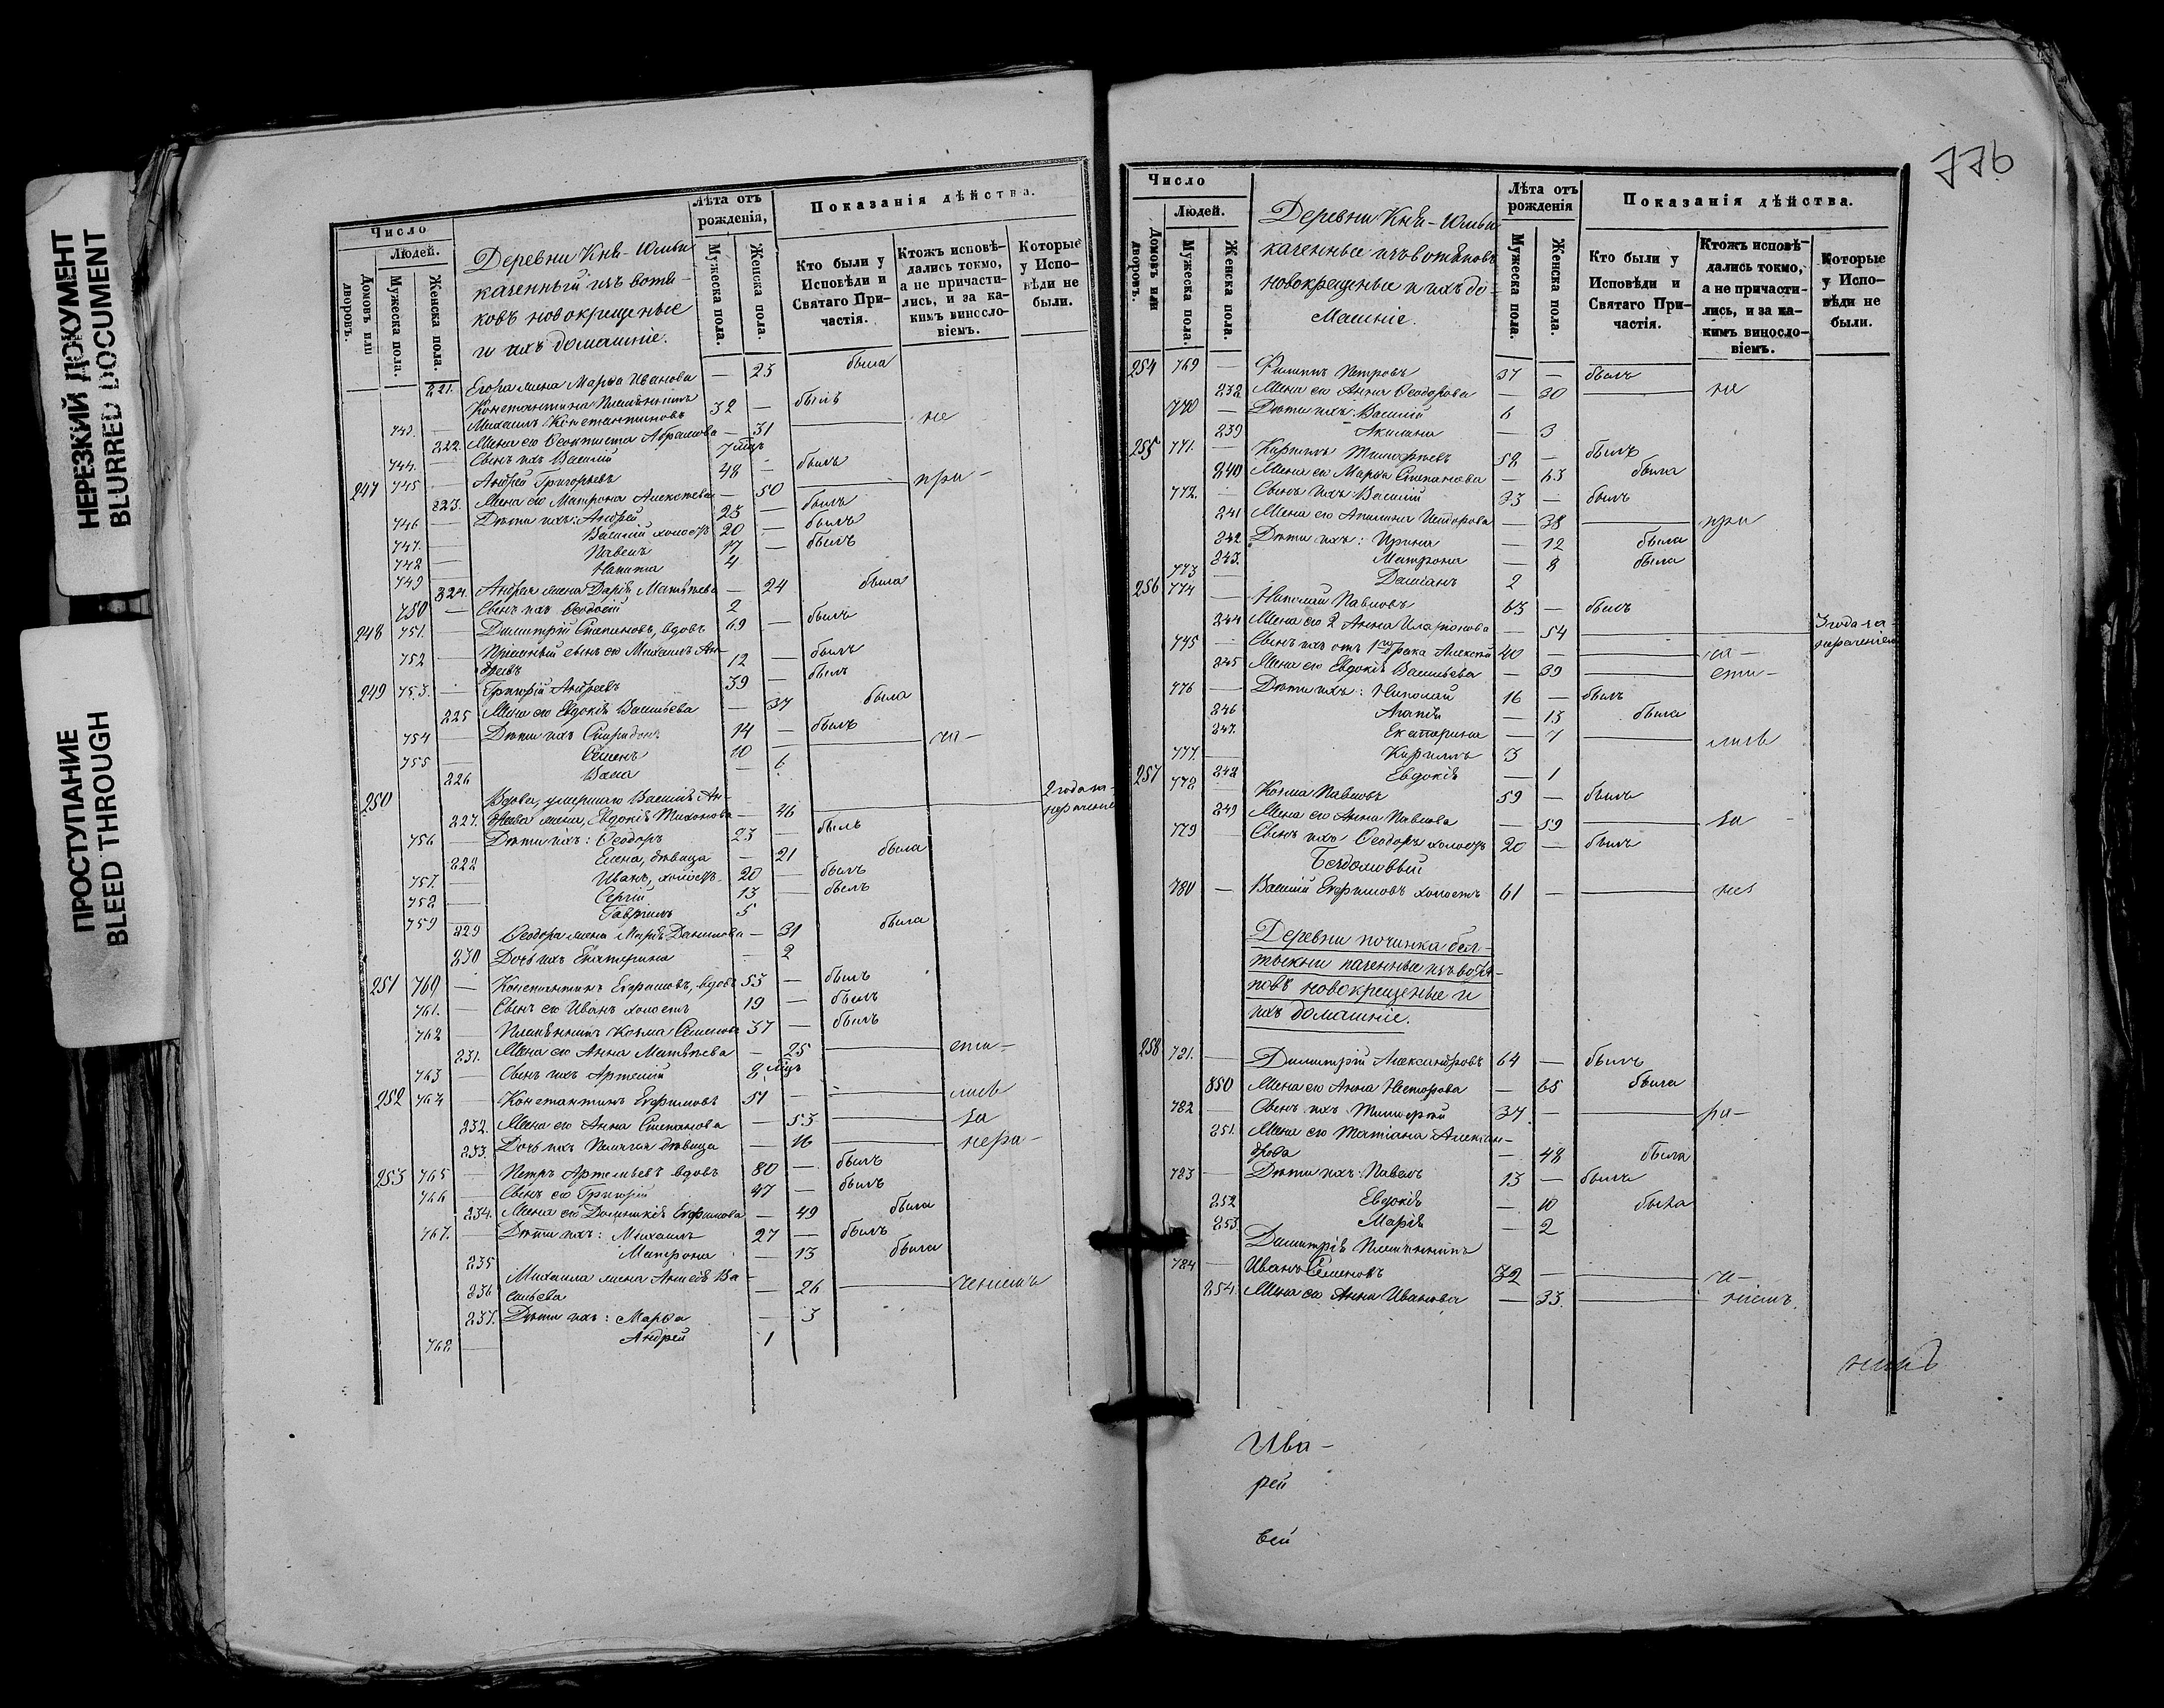 НЕРЕЗКИЙ ДОКУМЕНТ
BLURRED DOCUMENT
ПРОСТУПАНИЕ
BLEED THROUGH
Число
Людей.
Домовъ или дворовъ.
Мужеска пола.
Женска пола.
Деревни
казенный изъ вотя-
ковъ новокрещеные
и ихъ домашніе.
Лѣта отъ рожденія,
Мужеска пола.
Женска пола.
Показанія дѣйства.
Кто были у Исповѣди и Святаго Причастія.
Ктожъ исповѣдались токмо, а не причастились, и за какимъ винословіемъ.
Которые у Исповѣди не были.
221. Егора жена Марѳа Иванова — 23 была
Константина племянникъ
743. — Михаилъ Константиновъ 32 — былъ
222. Жена его Ѳеоктиста Абрамова — 31 — не
744. — Сынъ ихъ Василій 7 мцъ
247 745 — Андрей Григорьевъ 48 — былъ
223. Жена его Матрона Алексѣева — 50 — при-
746 — Дѣти ихъ: Андрей 23 — былъ
747. — Василій холостъ 20 — былъ
748 — Павелъ 17 — былъ
749 Никита 4
224. Андрея жена Дарія Матвѣева — 24 была
750 — Сынъ ихъ Ѳеодосій 2
248 751. — Димитрій Степановъ, вдовъ 69 — былъ
Пріемный сынъ его Михаилъ Ан-
752 — дреевъ 12 — былъ
249 753. — Григорій Андреевъ 39 — былъ
225 Жена его Евдокія Васильева — 37 была
754 — Дѣти ихъ Спиридонъ 14 — былъ
755 — Семенъ 10 — ча-
226 — 6
250 Вдова, умершаго Василія Ан-
227. дреева жена, Евдокія Тихонова — 46 — 2 года за нераченіе
756 — Дѣти ихъ: Ѳеодоръ 23 — былъ
228 Елена, дѣвица — 21 была
757. — Иванъ, холостъ 20 — былъ
758 — Сергій 13 — былъ
759 — Гавріилъ 5
229 Ѳеодора жена Марія Данилова — 31 была
230 Дочь ихъ Екатерина — 2
251 760 — Константинъ Ефремовъ, вдовъ 53 — былъ
761. — Сынъ его Иванъ холостъ 19 — былъ
762 — Племянникъ Козма Семеновъ 37 — былъ
231. Жена его Анна Матвѣева — 25 — сти-
763 — Сынъ ихъ Артемій 8 мцъ
252 764 — Константинъ Ефимовъ 51 — лись
232. Жена его Анна Степанова — 53 — За
233. Дочь ихъ Пелагія дѣвица — 16 — нера-
253 765 — Петръ Артемьевъ вдовъ 80 — былъ
766 — Сынъ его Григорій 47 — былъ
234. Жена его Домникія Ефимова — 49 была
767. — Дѣти ихъ: Михаилъ 27 — былъ
235 Матрона — 13 была
Михаила жена Ва-
236 сильева — 26 — ченіемъ
237. Дѣти ихъ: Марѳа — 3
768 — Андрей 1
776
Число
Людей.
Домовъ или дворовъ.
Мужеска пола.
Женска пола.
Деревни
казенные изъ вотяковъ
новокрещеные и ихъ до-
машніе.
Лѣта отъ рожденія
Мужеска пола.
Женска пола.
Показанія дѣйства.
Кто были у Исповѣди и Святаго Причастія.
Ктожъ исповѣдались токмо, а не причастились, и за какимъ винословіемъ.
Которые у Исповѣди не были.
254 769 — Филиппъ Петровъ 37 — былъ
238 Жена его Анна Ѳеодорова — 30 — не
770 — Дѣти ихъ: Василій 6
239 Акилина — 3
255 771. — Кириллъ Тимофеевъ 58 — былъ
240 Жена его Марѳа Степанова — 63 была
772. — Сынъ ихъ: Василій 33 — былъ
241 Жена его — 38 — при
242 Дѣти ихъ: Ирина — 12 была
243. Матрона — 8 была
773 — Даміанъ 2
256 774 — Николай Павловъ 63 — былъ
244 Жена его 2 Анна Иларіонова — 54 — 3 года за нераченіем
775 — Сынъ ихъ отъ 1го брака Алексѣй 40 — ча-
245 Жена его Евдокія Васильева — 39 — сти-
776 — Дѣти ихъ: Николай 16 — былъ
246 Агапія — 13 была
247. Екатерина — 7 — лись
777. — Кириллъ 3
248 Евдокія — 1
257 778 — Козма Павловъ 59 — былъ
249 Жена его Анна Павлова — 59 — За
779 — Сынъ ихъ Ѳеодоръ холостъ 20 — былъ
Бездомовый
780 — Василій Ефимовъ холостъ 61 — не
Деревни починка Бел-
казенные изъ вотя-
ковъ новокрещеные и
ихъ домашніе.
258 781. — Димитрій Александровъ 64 — былъ
250 Жена его Анна Несторова — 65 была
782 — Сынъ ихъ Тимофей 37 — ра-
251. Жена его Татіана Алексан-
дрова — 48 была
783 — Дѣти ихъ: Павелъ 13 — былъ
252 Евдокія — 10 была
253. Марія — 2
Димитрія племянникъ
784 — Иванъ Семеновъ 32 — че-
254. Жена его Анна Иванова — 33. — ніемъ.
Ива-
рей
вей